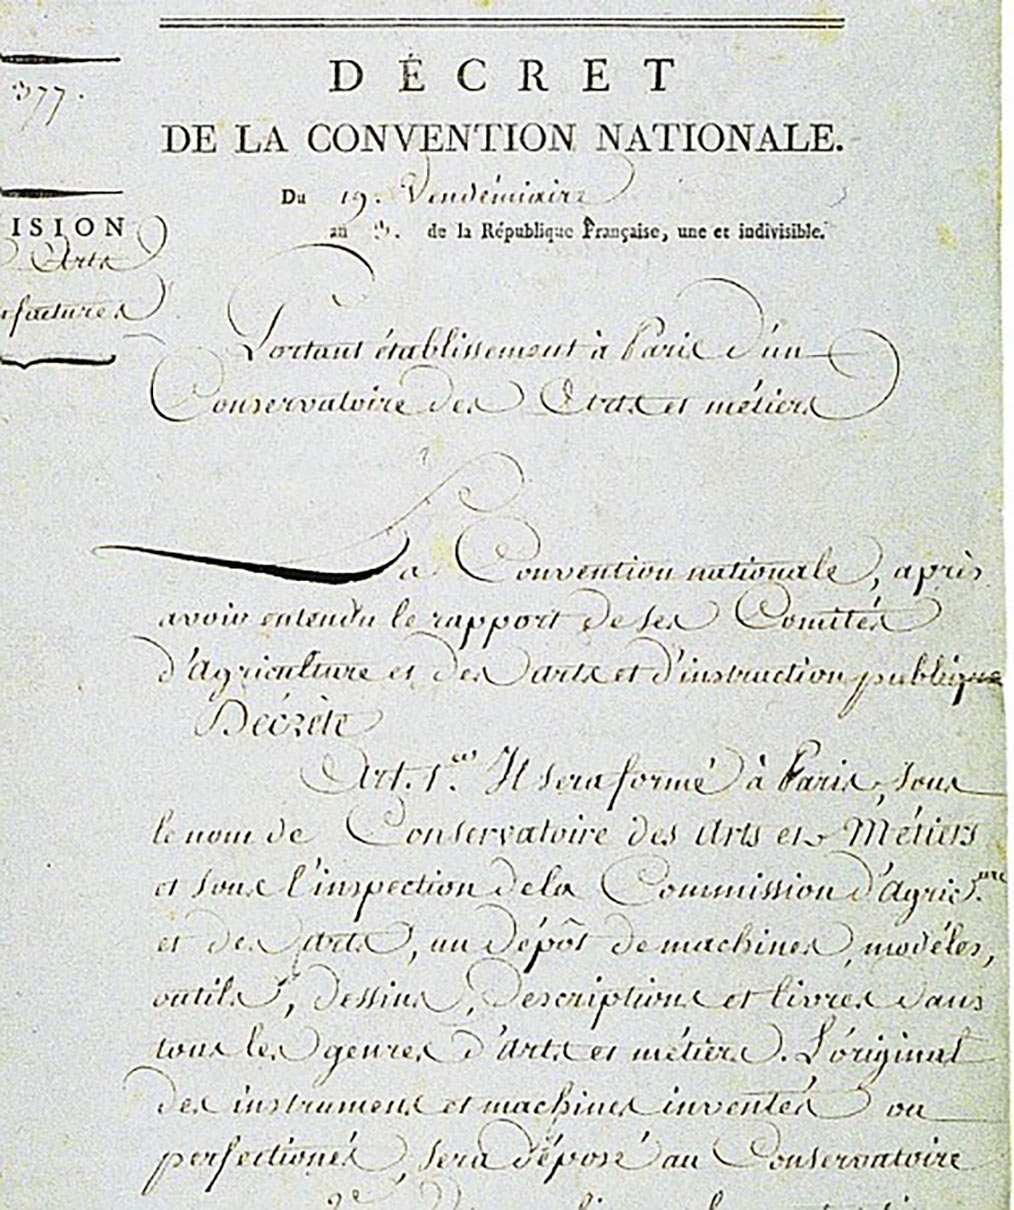 377.
ISION
Arts
factures
DÉCRET
DE LA CONVENTION NATIONALE.
Du 19. Vendémiaire
an 3. de la République Française, une et indivisible.
Portant établissement à Paris d'un
Conservatoire des Arts et métiers
La Convention nationale, après
avoir entendu le rapport de ses Comités
d'Agriculture et des arts et d'instruction publique
Décrète
Art. 1.er Il sera formé à Paris, sous
le nom de Conservatoire des Arts et Métiers
et sous l'inspection de la Commission d'Agric.ure
et des arts, un dépôt de machines, modéles,
outils, dessins, descriptions et livres dans
tous les genres d'arts et métiers. L'original
des instrumens et machines inventés ou
perfectionés, sera déposé au Conservatoire
2e